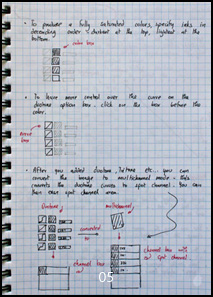 • To produce a fully saturated colors, specify inks in
descending order - darkest at the top, lightest at the
bottom.
color box
• To have more control over the curve on the
duotone option box. click on the box before the
color.
curve
box
• After you added duotone, tritone etc... you can
convert the image to multichannel mode - this
converts the duotone curves to spot channel. You can
then ease spot channel area.
Duotone
multichannel
converted
to
channel box
channel box with
spot channel.
05